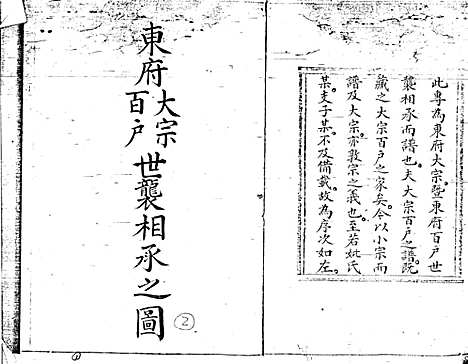 此專為東府大宗暨東府百戶世
襲相承而譜也夫大宗百戶之譜既
藏之大宗百戶之家矣今以小宗而
譜及大宗亦敦宗之義也至若妣氏
某支子某不及備載故為序次如左
東府大宗百戶世襲相承之圖
2